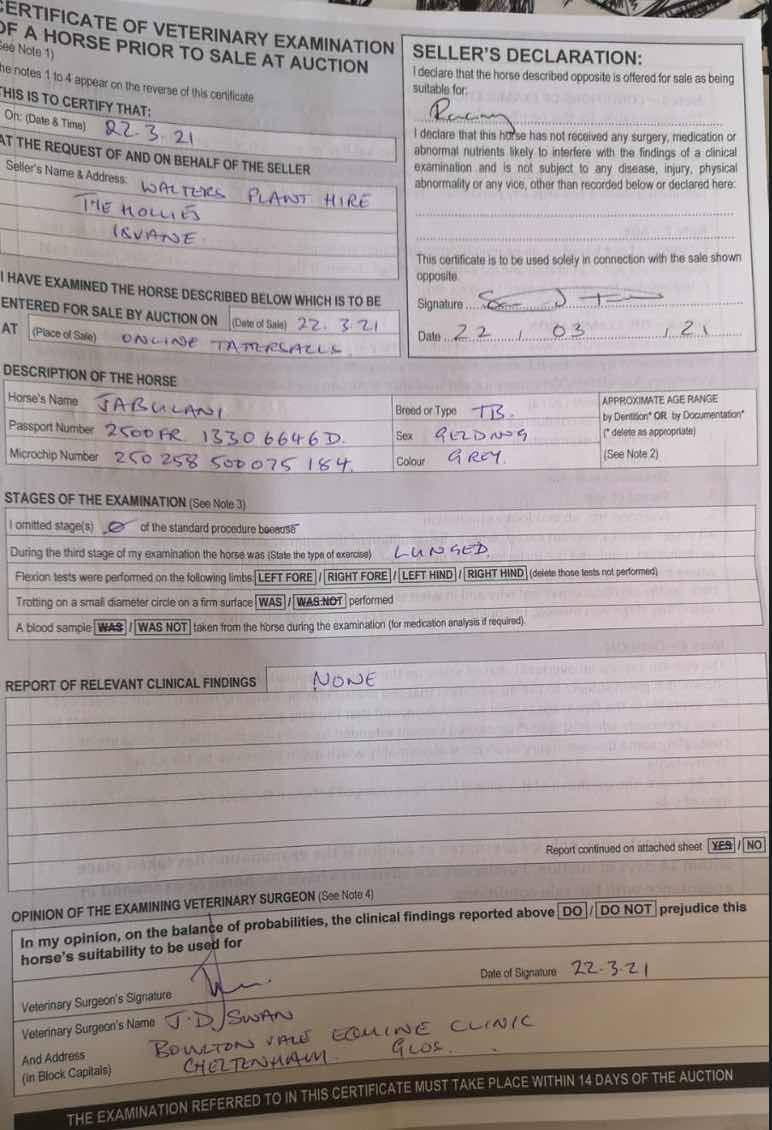 CERTIFICATE OF VETERINARY EXAMINATION
OF A HORSE PRIOR TO SALE AT AUCTION
(See Note 1)
The notes 1 to 4 appear on the reverse of this certificate
THIS IS TO CERTIFY THAT:
On: (Date & Time) 22.3.21
AT THE REQUEST OF AND ON BEHALF OF THE SELLER
Seller's Name & Address: WALTERS PLANT HIRE
THE HOLLIES
ISVANE
SELLER'S DECLARATION:
I declare that the horse described opposite is offered for sale as being
suitable for:
Racing
I declare that this horse has not received any surgery, medication or
abnormal nutrients likely to interfere with the findings of a clinical
examination and is not subject to any disease, injury, physical
abnormality or any vice, other than recorded below or declared here:
This certificate is to be used solely in connection with the sale shown
opposite.
Signature
Date 22 , 03 , 21
I HAVE EXAMINED THE HORSE DESCRIBED BELOW WHICH IS TO BE
ENTERED FOR SALE BY AUCTION ON (Date of Sale) 22.3.21
AT (Place of Sale) ONLINE TATTERSALLS
DESCRIPTION OF THE HORSE
Horse's Name JABULANI
Passport Number 2500FR 13306646D.
Microchip Number 250 258 500 075 184.
Breed or Type TB.
Sex GELDING
Colour GREY.
APPROXIMATE AGE RANGE
by Dentition* OR by Documentation*
(* delete as appropriate)
(See Note 2)
STAGES OF THE EXAMINATION (See Note 3)
I omitted stage(s) 0 of the standard procedure because
During the third stage of my examination the horse was (State the type of exercise) LUNGED.
Flexion tests were performed on the following limbs: LEFT FORE / RIGHT FORE / LEFT HIND / RIGHT HIND (delete those tests not performed)
Trotting on a small diameter circle on a firm surface WAS / WAS NOT performed
A blood sample WAS / WAS NOT taken from the horse during the examination (for medication analysis if required).
REPORT OF RELEVANT CLINICAL FINDINGS NONE
Report continued on attached sheet YES / NO
OPINION OF THE EXAMINING VETERINARY SURGEON (See Note 4)
In my opinion, on the balance of probabilities, the clinical findings reported above DO / DO NOT prejudice this
horse's suitability to be used for
Veterinary Surgeon's Signature
Date of Signature 22.3.21
Veterinary Surgeon's Name J.D. SWAN
And Address BOULTON VALE EQUINE CLINIC
(in Block Capitals) CHELTENHAM. GLOS.
THE EXAMINATION REFERRED TO IN THIS CERTIFICATE MUST TAKE PLACE WITHIN 14 DAYS OF THE AUCTION